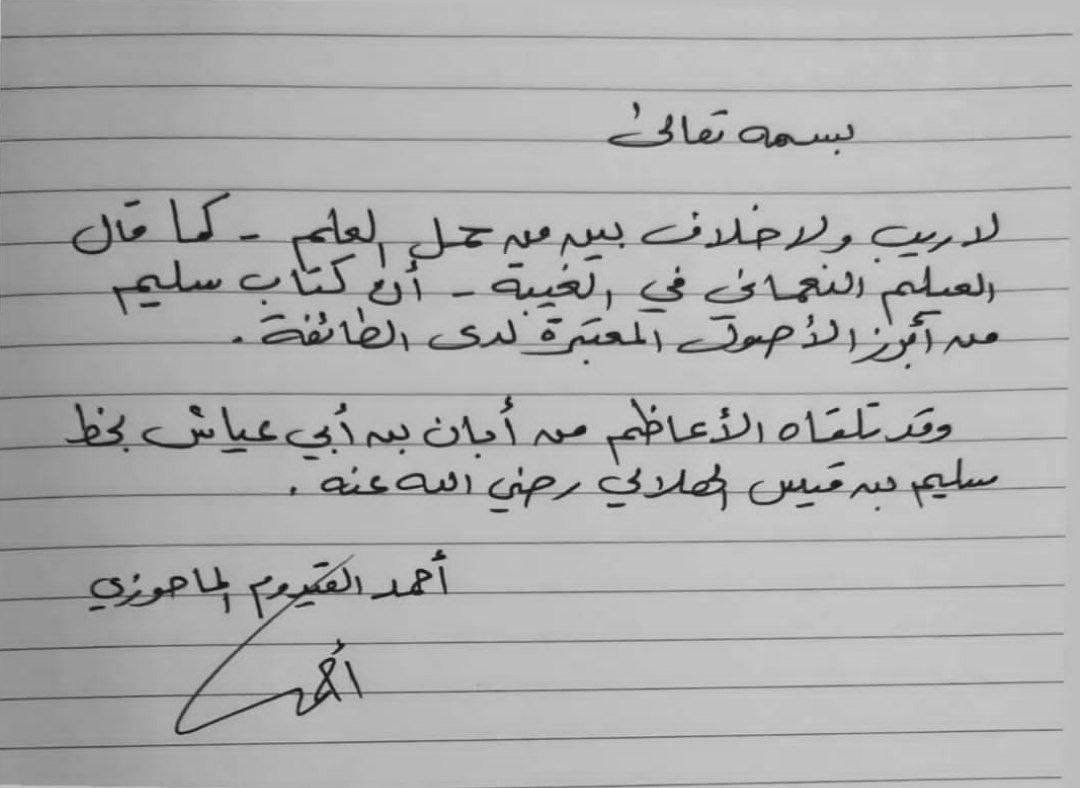 بسمه تعالىٰ
لا ريب ولا خلاف بين من حمل العلم - كما قال
العيلم النعماني في الغيبة - أن كتاب سليم
من أبرز الأصول المعتبرة لدى الطائفة .
وقد تلقاه الأعاظم من أبان بن أبي عياش بخط
سليم بن قيس الهلالي رضي الله عنه .
أحمد القيدوم الماحوزي
أحمد